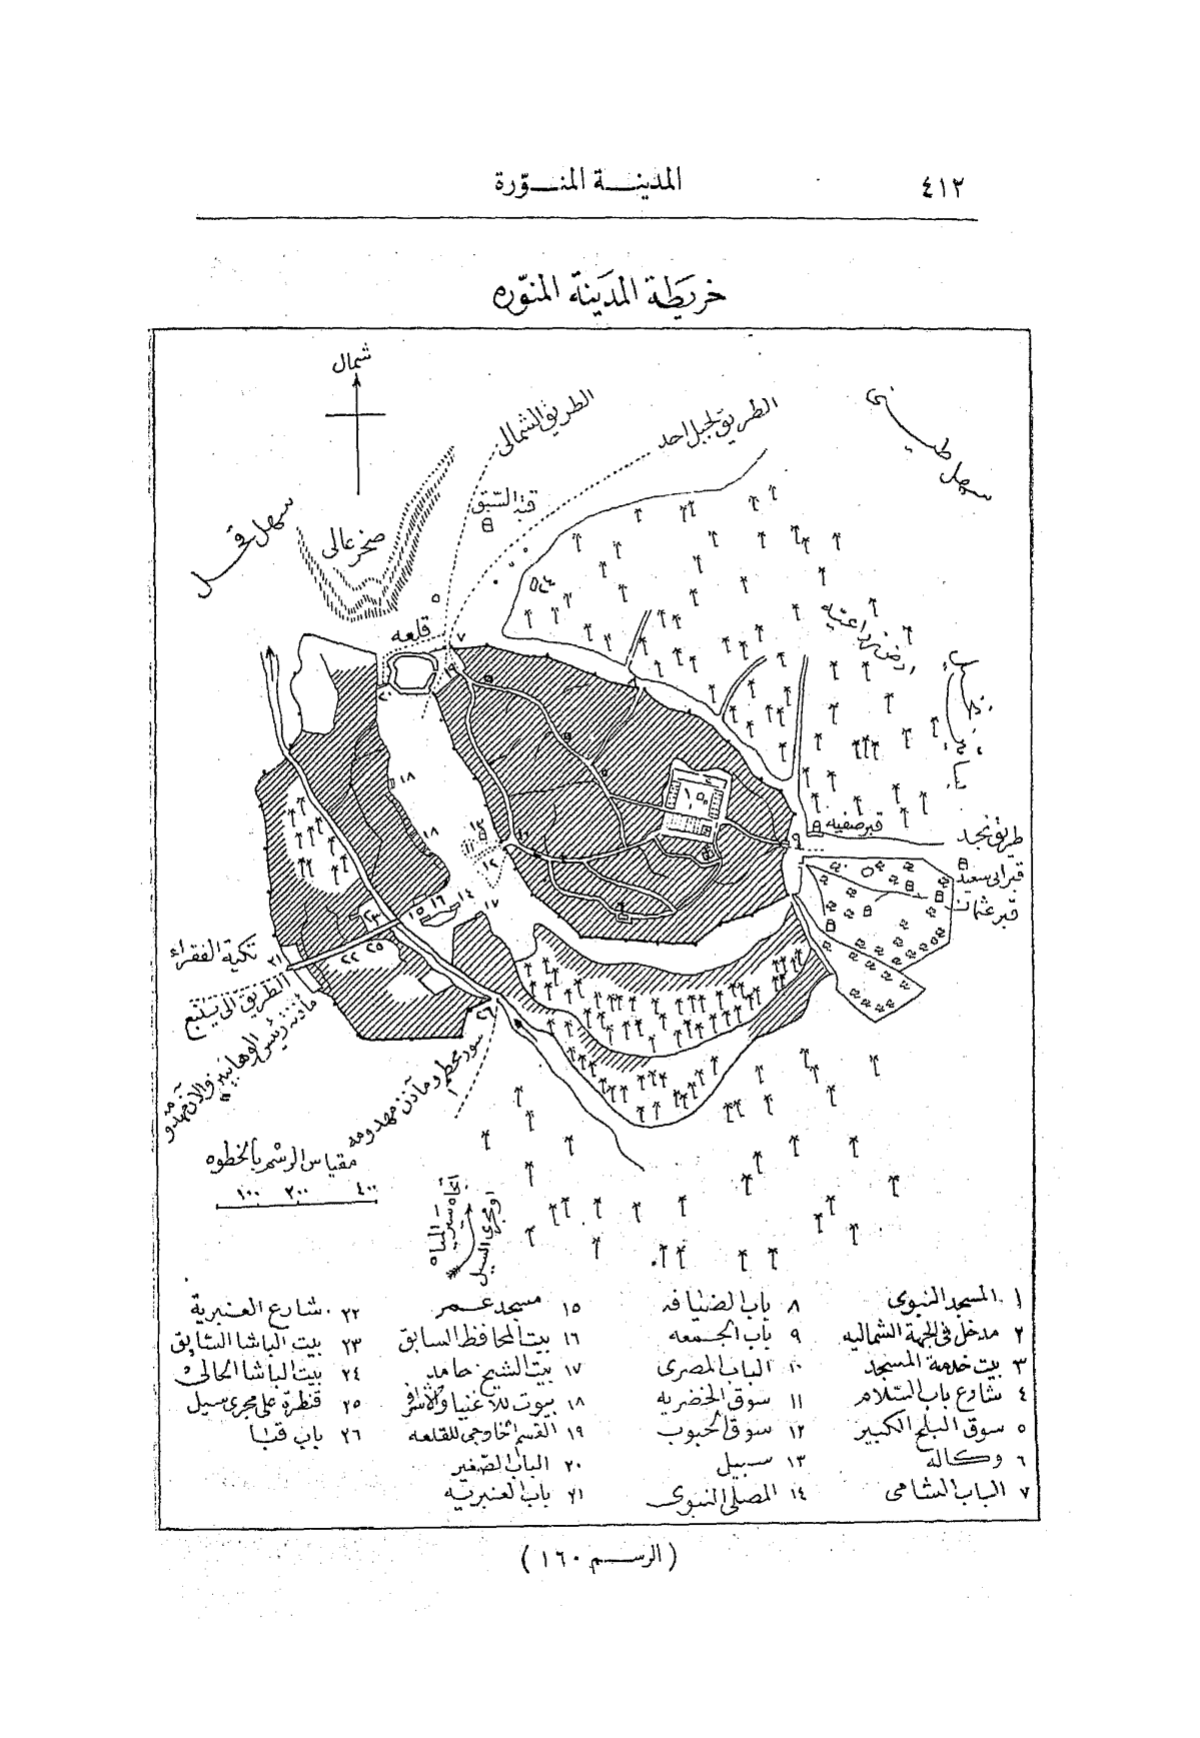 ٤١٣
المدينة المنوّرة
خريطة المدينة المنوّره
شمال
الطريق الشمالى
الطريق لجبل احد
سهل
قبة السّبق
صخر عالى
سهل قحل
قلعه
ارض زراعيّة
قبر صفيه
طريق نجد
قبر ابى سعيد
قبر عثمان
تكية الفقراء
الطريق الى ينبع
سور محطم ومآذن مهدومه
مقياس الرسم بالخطوه
١٠٠ ٢٠٠ ٤٠٠
اتجاه سير المياه
او مجرى السيل
١ المسجد النبوى
٢ مدخل فى الجهة الشماليه
٣ بيت خدمة المسجد
٤ شارع باب السّلام
٥ سوق البلح الكبير
٦ وكالة
٧ الباب الشامى
٨ باب الضيافه
٩ باب الجمعه
١٠ الباب المصرى
١١ سوق الخضريه
١٢ سوق الحبوب
١٣ سبيل
١٤ المصلى النبوى
١٥ مسجد عمر
١٦ بيت المحافظ السابق
١٧ بيت الشيخ حامد
١٨ بيوت للأغنياء والأشراف
١٩ القسم الخارجى للقلعه
٢٠ الباب الصّغير
٢١ باب العنبريّه
٢٢ شارع العنبرية
٢٣ بيت الباشا السّابق
٢٤ بيت الباشا الحالى
٢٥ قنطرة على مجرى سيل
٢٦ باب قبا
(الرسم ١٦٠)